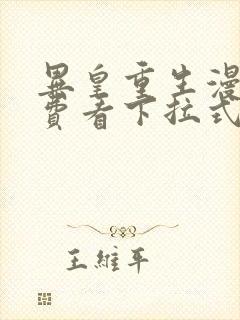 異皇重生漫
費看下拉式
王維平